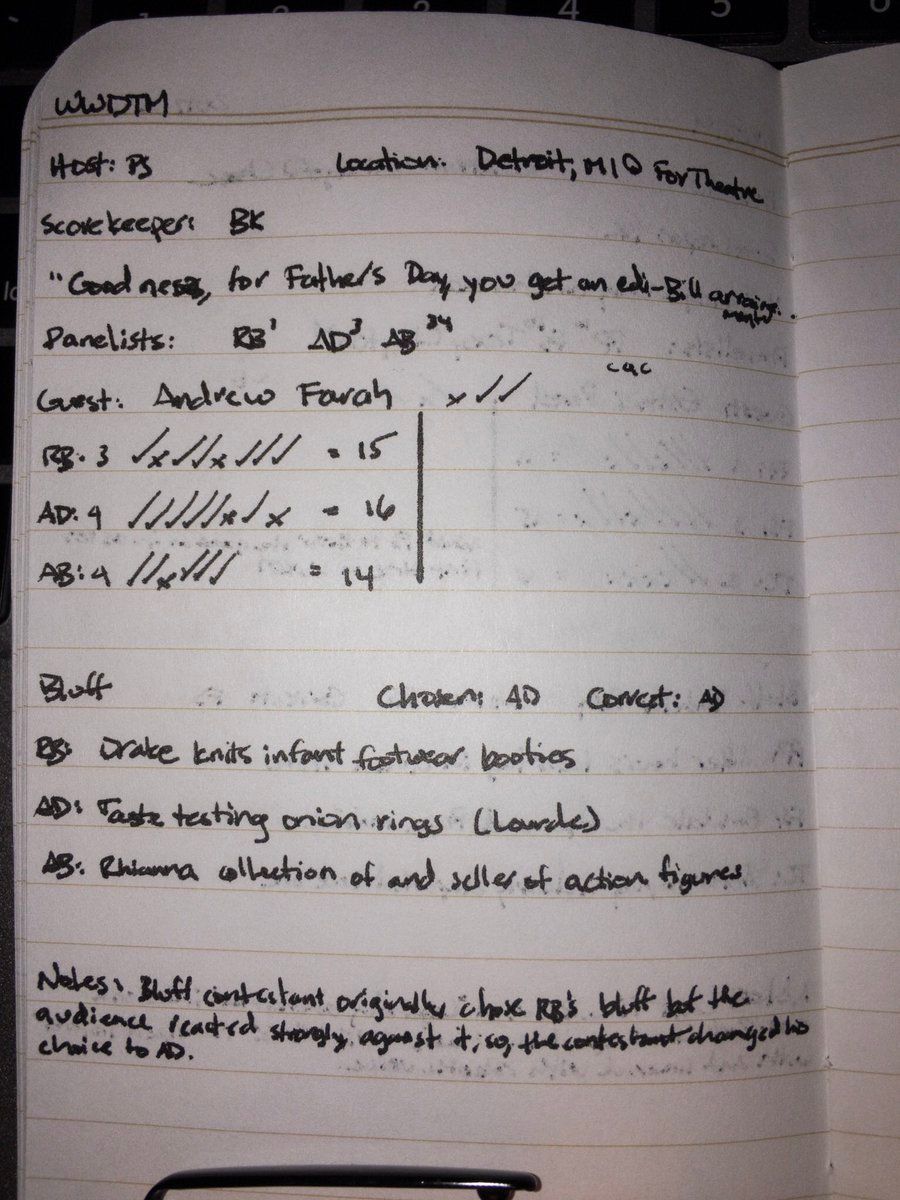 WWDTM
Host: PS Location: Detroit, MI @ Fox Theatre
Scorekeeper: BK
"Goodness, for Father's Day, you get an edi-Bill arrange-
ment"
Panelists: RB¹ AD³ AB²⁴
Guest: Andrew Farah x✓✓ cac
RB: 3 ✓x✓✓x✓✓✓ = 15
AD: 4 ✓✓✓✓✓x✓x = 16
AB: 4 ✓✓x✓✓✓ = 14
Bluff Chosen: AD Correct: AD
RB: Drake knits infant footwear booties
AD: Taste testing onion rings (Lourde)
AB: Rhianna collection of and seller of action figures
Notes: Bluff contestant originally chose RB's bluff but the
audience reacted strongly against it, so, the contestant changed his
choice to AD.